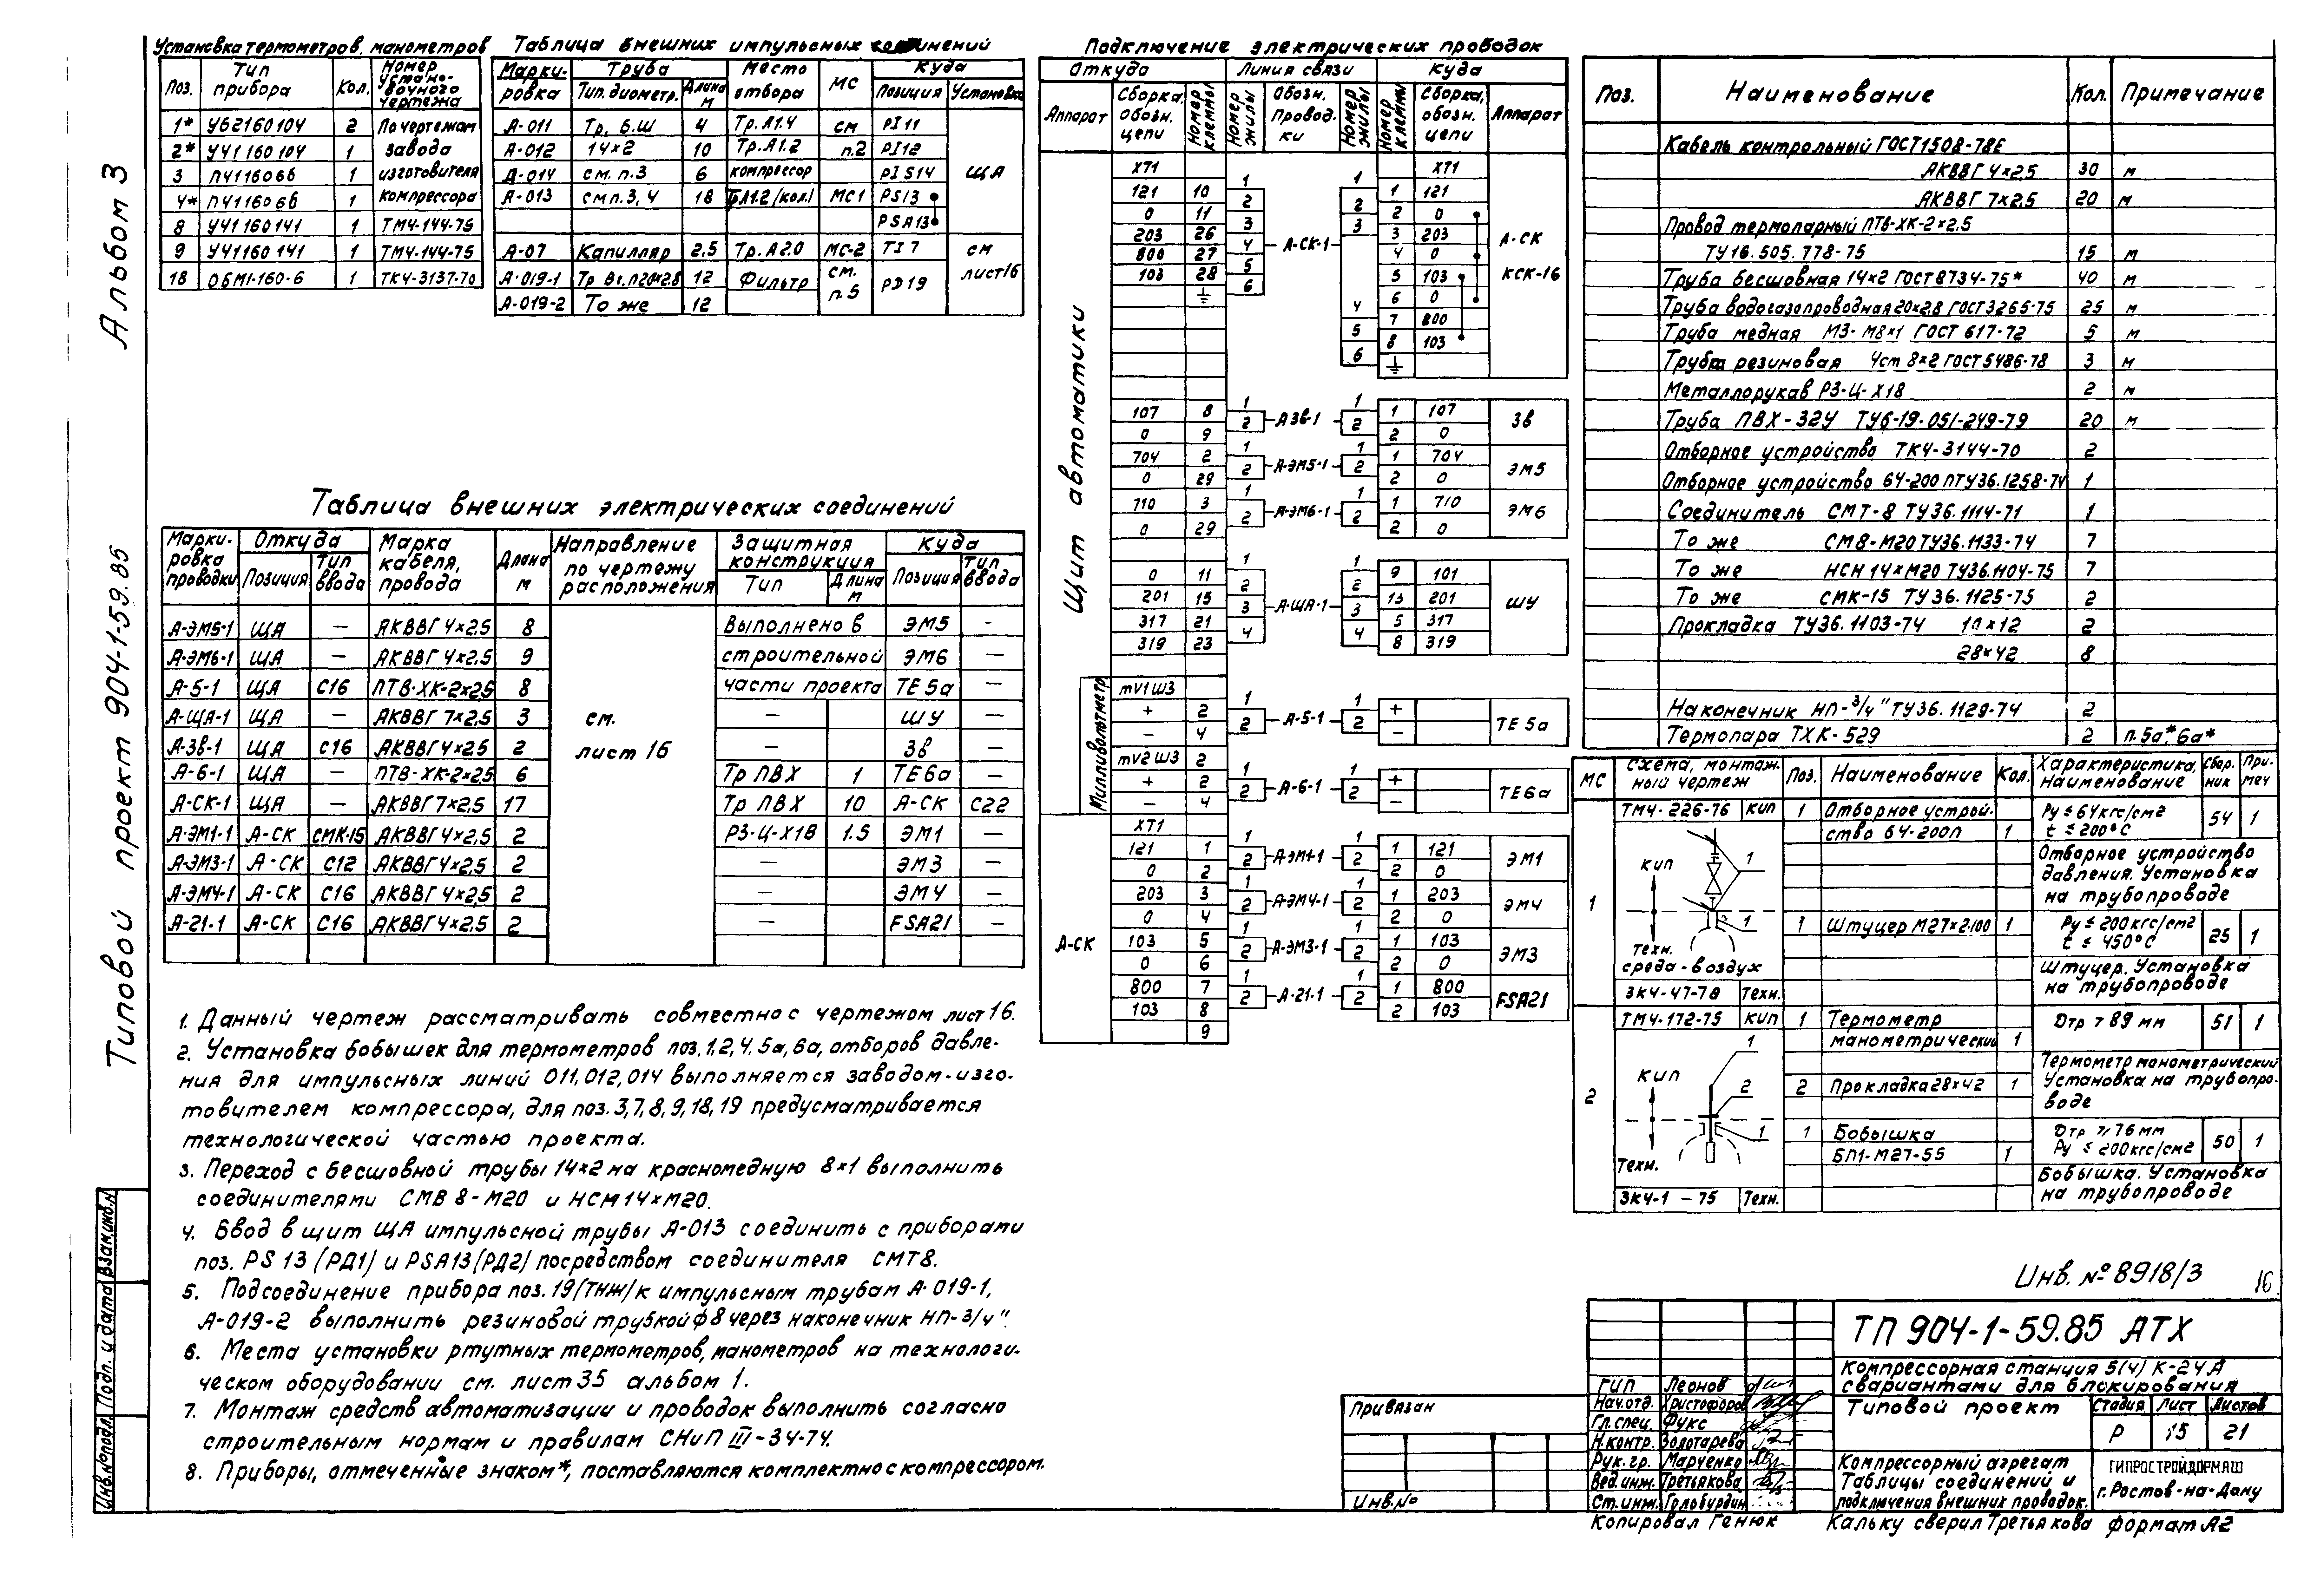 Альбом 3
Типовой проект 904-1-59.85
Установка термометров, манометров
Поз. Тип прибора Кол. Номер установочного чертежа
1* У62160104 2 По чертежам
2* УЧ1 160 104 1 завода
3 ПЧ116066 1 изготовителя
4* ПЧ1160 66 1 компрессора
8 УЧ1 160141 1 ТМ4-144-75
9 УЧ1160 141 1 ТМ4-144-75
18 ОБМ1-160-6 1 ТК4-3137-70
Таблица внешних импульсных соединений
Маркировка Труба Место отбора МС Куда
Тип. диометр. Длана м Позиция Установка
А-011 Тр. б.ш 4 Тр. А1.4 см PI11
А-012 14×2 10 Тр. А1.2 п.2 PI12
А-014 см. п.3 6 компрессор PIS14 ЩА
А-013 см п. 3, 4 18 Тр.А1.2/кол.) МС1 PS13
PSA13
А-07 Капилляр 2,5 Тр. А2.0 МС-2 TI7 см
А-019-1 Тр Вг.п20×2.8 12 Фильтр см. п.5 PD19 лист16
А-019-2 То же 12
Таблица внешних электрических соединений
Маркировка проводки Откуда Марка кабеля, провода Длана м Направление по чертежу расположения Защитная конструкция Куда
Позиция Тип ввода Тип Длина м Позиция Тип ввода
А-ЭМ5-1 ЩА — АКВВГ 4×2,5 8 Выполнено в ЭМ5 -
А-ЭМ6-1 ЩА — АКВВГ 4×2,5 9 строительной ЭМ6 —
А-5-1 ЩА С16 ПТВ-ХК-2×2,5 8 части проекта ТЕ5а —
А-ЩА-1 ЩА — АКВВГ 7×2,5 3 см. — ШУ —
А-3в-1 ЩА С16 АКВВГ4×2,5 2 лист 16 — 3в —
А-6-1 ЩА — ПТВ-ХК-2×2,5 6 Тр ПВХ 1 ТЕ6а —
А-СК-1 ЩА — АКВВГ7×2,5 17 Тр ПВХ 10 А-СК С22
А-ЭМ1-1 А-СК СМК-15 АКВВГ4×2,5 2 РЗ-Ц-Х18 1.5 ЭМ1 —
А-ЭМ3-1 А-СК С12 АКВВГ4×2,5 2 — ЭМ3 —
А-ЭМ4-1 А-СК С16 АКВВГ4×2,5 2 — ЭМ4 —
А-21-1 А-СК С16 АКВВГ4×2,5 2 — FSA21 —
1. Данный чертеж рассматривать совместно с чертежом лист 16.
2. Установка бобышек для термометров поз. 1, 2, 4, 5а, 6а, отборов давле-
ния для импульсных линий 011, 012, 014 выполняется заводом-изго-
товителем компрессора, для поз. 3, 7, 8, 9, 18, 19 предусматривается
технологической частью проекта.
3. Переход с бесшовной трубы 14×2 на красномедную 8×1 выполнить
соединителями СМВ 8-М20 и НСМ14×М20.
4. Ввод в щит ЩА импульсной трубы А-013 соединить с приборами
поз. PS 13 (РД1) и PSA13(РД2) посредством соединителя СМТ8.
5. Подсоединение прибора поз. 19/ТНЖ/к импульсным трубам А-019-1,
А-019-2 выполнить резиновой трубкой ф 8 через наконечник НП-3/4".
6. Места установки ртутных термометров, манометров на технологи-
ческом оборудовании см. лист 35 альбом 1.
7. Монтаж средств автоматизации и проводок выполнить согласно
строительным нормам и правилам СНиП III-34-74.
8. Приборы, отмеченные знаком*, поставляются комплектно с компрессором.
Подключение электрических проводок
Откуда Линия связи Куда
Аппарат Сборка, обозн. цепи Номер клеммы Номер жилы Обозн. Провод.ки Номер жилы Номер клеммы Сборка, обозн. цепи Аппарат
Щит автоматики
ХТ1 1 1 ХТ1
121 10 2 1 121
0 11 3 2 2 0
203 26 4 А-СК-1 3 3 203 А-СК
800 27 5 4 0
103 28 6 5 103 КСК-16
6 0
4 7 800
5 8 103
6
107 8 1 А3в-1 1 1 107 3в
0 9 2 2 2 0
704 2 1 А-ЭМ5-1 1 1 704 ЭМ5
0 29 2 2 2 0
710 3 1 А-ЭМ6-1 1 1 710 ЭМ6
0 29 2 2 2 0
0 11 1 1 9 101
201 15 2 А-ЩА-1 2 13 201 ШУ
317 21 3 3 5 317
319 23 4 4 8 319
Милливольтметр
mV1 Ш3
+ 2 1 А-5-1 1 + ТЕ 5а
- 4 2 2 -
mV2 Ш3 2
+ 2 1 А-6-1 1 + ТЕ6а
- 4 2 2 -
А-СК
ХТ1
121 1 1 А-ЭМ1-1 1 1 121 ЭМ1
0 2 2 2 2 0
203 3 1 А-ЭМ4-1 1 1 203 ЭМ4
0 4 2 2 2 0
103 5 1 А-ЭМ3-1 1 1 103 ЭМ3
0 6 2 2 2 0
800 7 1 А-21-1 1 1 800 FSA21
103 8 2 2 2 103
9
Поз. Наименование Кол. Примечание
Кабель контрольный ГОСТ1508-78Е
АКВВГ 4×2,5 30 м
АКВВГ 7×2,5 20 м
Провод термопарный ПТВ-ХК-2×2,5
ТУ16.505.778-75 15 м
Труба бесшовная 14×2 ГОСТ8734-75* 40 м
Труба водогазопроводная 20×2,8 ГОСТ3265-75 25 м
Труба медная М3-М8×1 ГОСТ 617-72 5 м
Труба резиновая Чст 8×2 ГОСТ5486-78 3 м
Металлорукав РЗ-Ц-Х18 2 м
Труба ПВХ-32У ТУ6-19-051-249-79 20 м
Отборное устройство ТК4-3144-70 2
Отборное устройство 64-200 ПТУ36.1258-74 1
Соединитель СМТ-8 ТУ36.1114-71 1
То же СМ8-М20 ТУ36.1133-74 7
То же НСН 14×М20 ТУ36.1104-75 7
То же СМК-15 ТУ36.1125-75 2
Прокладка ТУ36.1103-74 10×12 2
28×42 8
Наконечник НП-3/4" ТУ36.1129-74 2
Термопара ТХК-529 2 п.5а*, 6а*
МС Схема, монтажный чертеж Поз. Наименование Кол. Характеристика, Наименование Сбор.ник При.меч
ТМ4-226-76 КИП 1 Отборное устрой- Ру ≤ 64кгс/см2 54 1
ство 64-200П 1 t ≤ 200°С
Отборное устройство
давления. Установка
на трубопроводе
1 КИП 1
1 Штуцер М27×2-100 1 Ру ≤ 200кгс/см2 25 1
t ≤ 450°С
Техн.
среда-воздух
Штуцер. Установка
на трубопроводе
ЗК4-47-78 Техн.
ТМ4-172-75 КИП 1 Термометр Dтр > 89 мм 51 1
манометрический 1
Термометр манометрический
Установка на трубопро-
воде
2 КИП 1 2 1
2 Прокладка 28×42 1
1 Бобышка Dтр ≥ 76мм 50 1
БП1-М27-55 1 Ру ≤ 200кгс/см2
Техн.
Бобышка. Установка
на трубопроводе
ЗК4-1-75 Техн.
Инв. № 8918/3
16
ТП 904-1-59.85 АТХ
Компрессорная станция 5(4) К-24А
с вариантами для блокирования
Типовой проект Стадия Лист Листов
Р 15 21
Компрессорный агрегат
Таблицы соединений и
подключения внешних проводок.
ГИПРОСТРОЙДОРМАШ
г. Ростов-на-Дону
ГИП Леонов
Нач.отд. Христофоров
Гл.спец. Фукс
Н.контр. Золотарева
Рук.гр. Марченко
Вед.инж. Третьякова
Ст.инж. Голобурдин
Привязан
Инв.№
Копировал Генюк Кальку сверил Третьякова формат А2
Инв.№подл. Подп. и дата Взам.инв.№